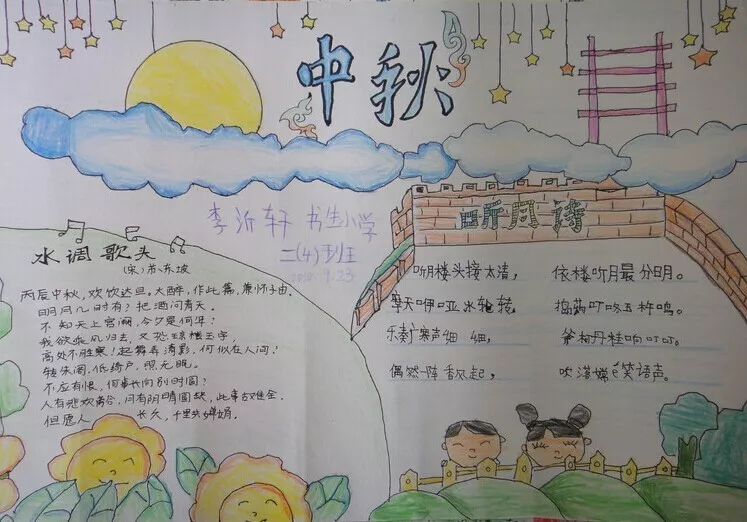 中秋
李沂轩 书生小学
二(4)班
9.23
水调歌头
(宋)苏东坡
丙辰中秋,欢饮达旦,大醉,作此篇,兼怀子由。
明月几时有?把酒问青天。
不知天上宫阙,今夕是何年?
我欲乘风归去,又恐琼楼玉宇,
高处不胜寒,起舞弄清影,何似在人间?
转朱阁,低绮户,照无眠。
不应有恨,何事长向别时圆?
人有悲欢离合,月有阴晴圆缺,此事古难全。
但愿人 长久,千里共婵娟。
听月诗
听月楼头接太清, 依楼听月最分明。
摩天咿哑冰轮转, 捣药叮咚玉杵鸣。
乐奏广寒声细 细, 斧柯丹桂响叮叮。
偶然一阵香风起, 吹落嫦 笑语声。